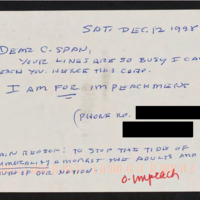 SAT. DEC. 12 1998
DEAR C-SPAN,
YOUR LINES ARE SO BUSY I CAN
REACH YOU. HENCE THIS CARD.
I AM FOR IMPEACHMENT
(PHONE NO.
MAIN REASON: TO STOP THE TIDE OF
IMMORALITY AMONGST THE ADULTS AND
OF OUR NATION
impeach